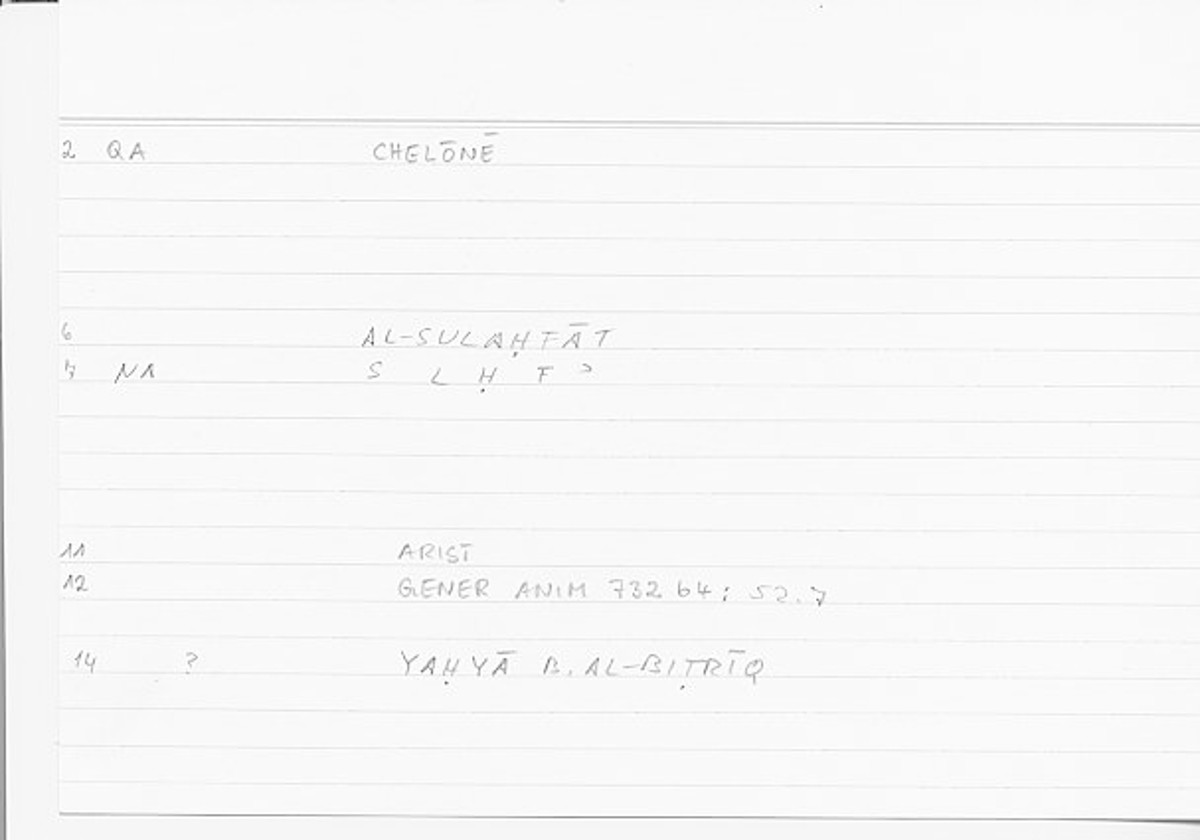 2 QA CHELŌNĒ
6 AL-SULAḤFĀT
7 NA S L Ḥ F ʾ
11 ARIST
12 GENER ANIM 732 b4; 52.7
14 ? YAḤYĀ B. AL-BIṬRĪQ